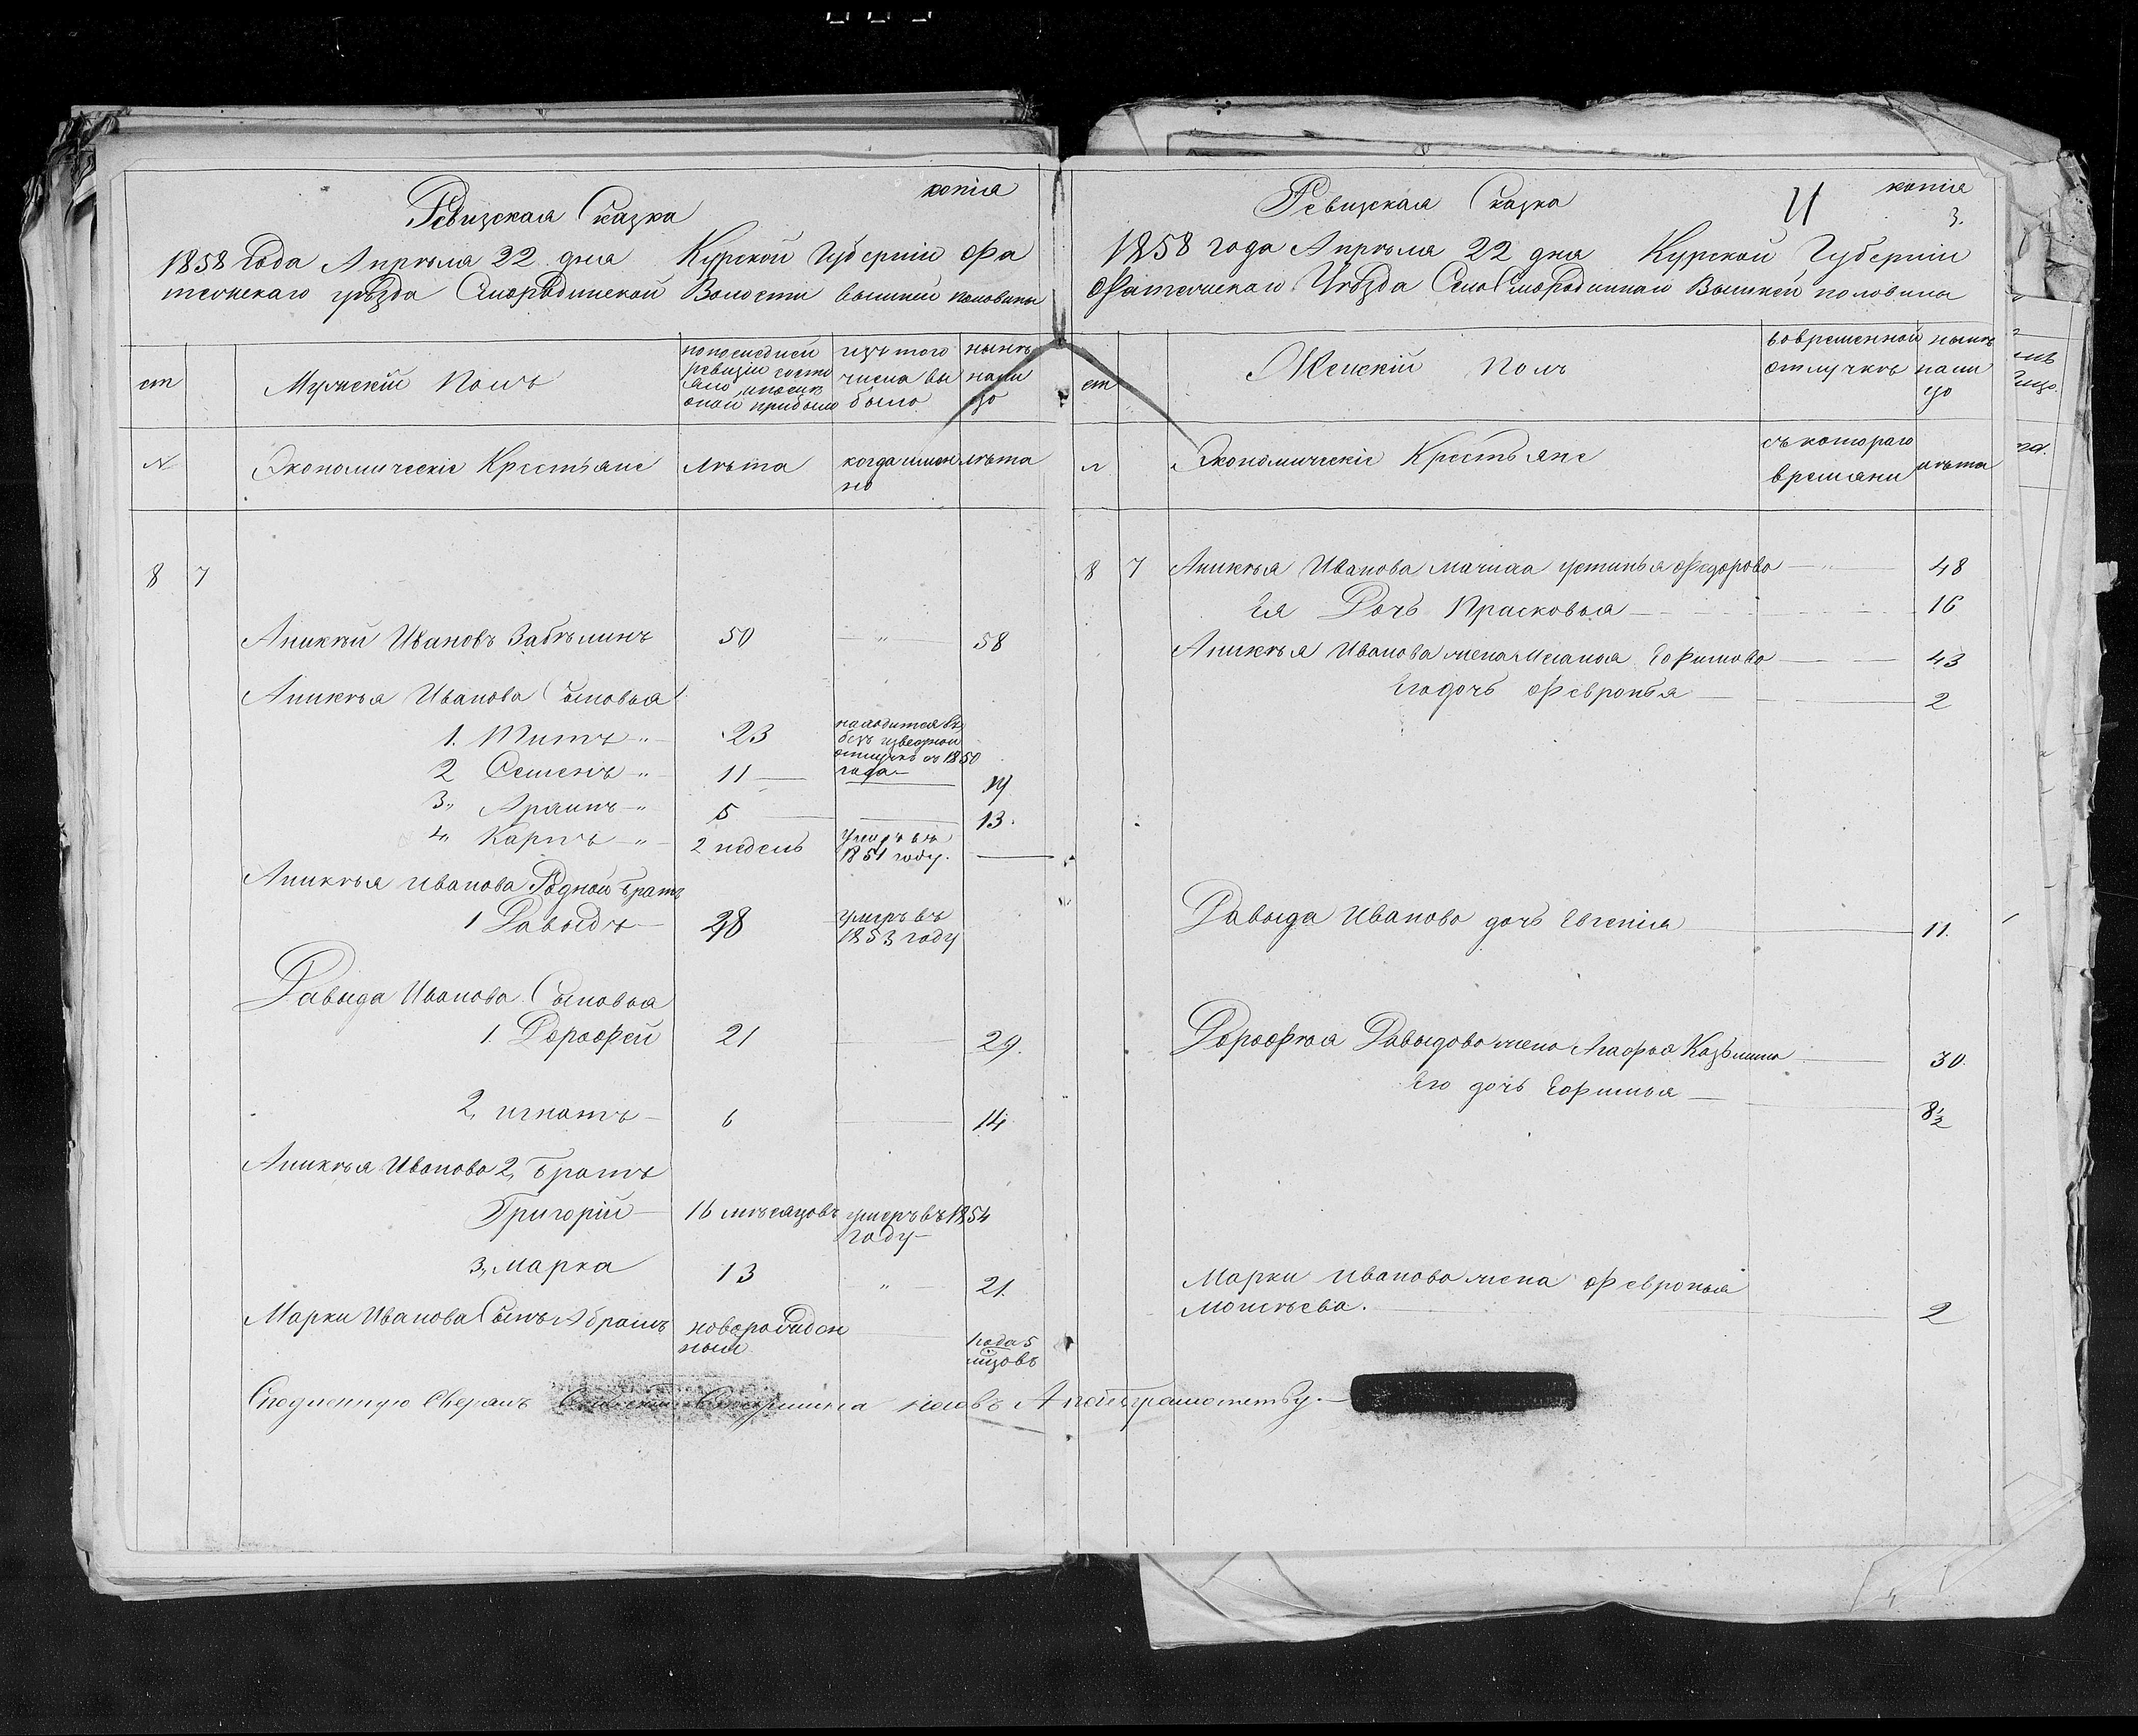 копія
Ревизская Сказка
1858 Года Апреля 22 дня Курской Губерніи Фа
тежскаго уезда Смородинской Волости вышней половины
ст
Мужескій Полъ
попоследней
ревизіи состо
яло ипосле
оной прибыло
изътого
числа вы
было
ныне
нали
цо
N
Экономическіе Крестьяне
лета
когда имен
но
лета
8 7
Аникей Ивановъ Забелинъ 50 " 58
Аникея Иванова Сыновья
1. Титъ " 23
находится въ
безъ изведной
отлучке съ 1850
года
2 Семенъ " 11 19
3, " 5 13.
4, Карпъ " 2 недель
умеръ въ
1851 году.
Аникея Иванова Родной братъ
1 Давыдъ 28
умеръ въ
1853 году
Давыда Иванова Сыновья
1. Дорофей 21 29.
2, игнатъ 6 14
Аникея Иванова 2, братъ
Григорій 16 месяцовъ умеръ въ 1854
году
3, марка 13 " 21.
Марки Иванова Сынъ Абрамъ новорожден
ный
года 5
мцовъ
копія
3.
Ревизская Сказка
1858 года Апреля 22 дня Курской Губерніи
Фатежскаго Уезда Села Смородиннаго Вышней половины
ст
Женскій Полъ
вовременной
отлучке
ныне
нали
цо
Экономическіе Крестьяне
съ котораго
времяни
лета
8 7 Аникея Иванова мачиха устинья Федорова 48
Ея Дочь Прасковья 16
Аникея Иванова жена Меланья Ефимова 43
Его дочь Февронья 2
Давыда Иванова дочь Евгенія 11.
Дорофея Давыдова жена Агафья Казьмина 30.
Его дочь Ефимья 8½
Марки Иванова жена Февронья
2